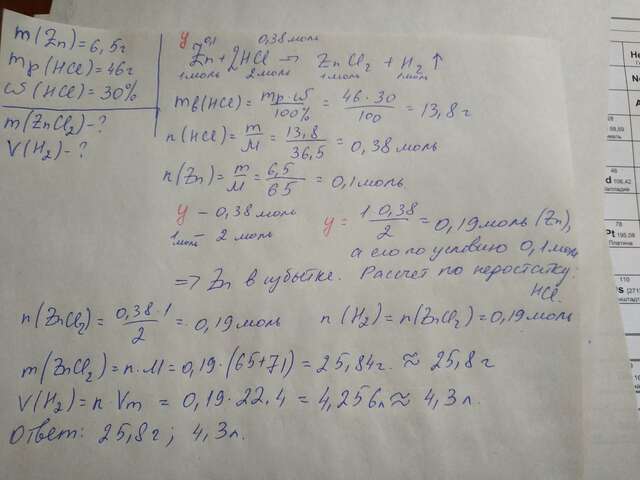 m(Zn)=6,5г
mр(HCl)=46г
ω(HCl)=30%
m(ZnCl₂)-?
V(H₂)-?
y 0,1 0,38моль
Zn+2HCl → ZnCl₂ + H₂↑
1моль 2моль 1моль 1моль
mв(HCl)= mр·ω/100% = 46·30/100 = 13,8г
n(HCl)= m/M = 13,8/36,5 = 0,38моль
n(Zn)= m/M = 6,5/65 = 0,1моль
y - 0,38моль
1моль - 2моль
y = 1·0,38/2 = 0,19моль(Zn),
а его по условию 0,1моль
=> Zn в избытке. Рассчет по недостатку:
HCl.
n(ZnCl₂)= 0,38·1/2 = 0,19моль n(H₂)=n(ZnCl₂)=0,19моль
m(ZnCl₂)=n·M=0,19·(65+71)=25,84г. ≈ 25,8г
V(H₂)=n·Vm = 0,19·22,4 = 4,256л ≈ 4,3л.
Ответ: 25,8г; 4,3л.
46
106,42
78
Pt 195,08
Платина
110